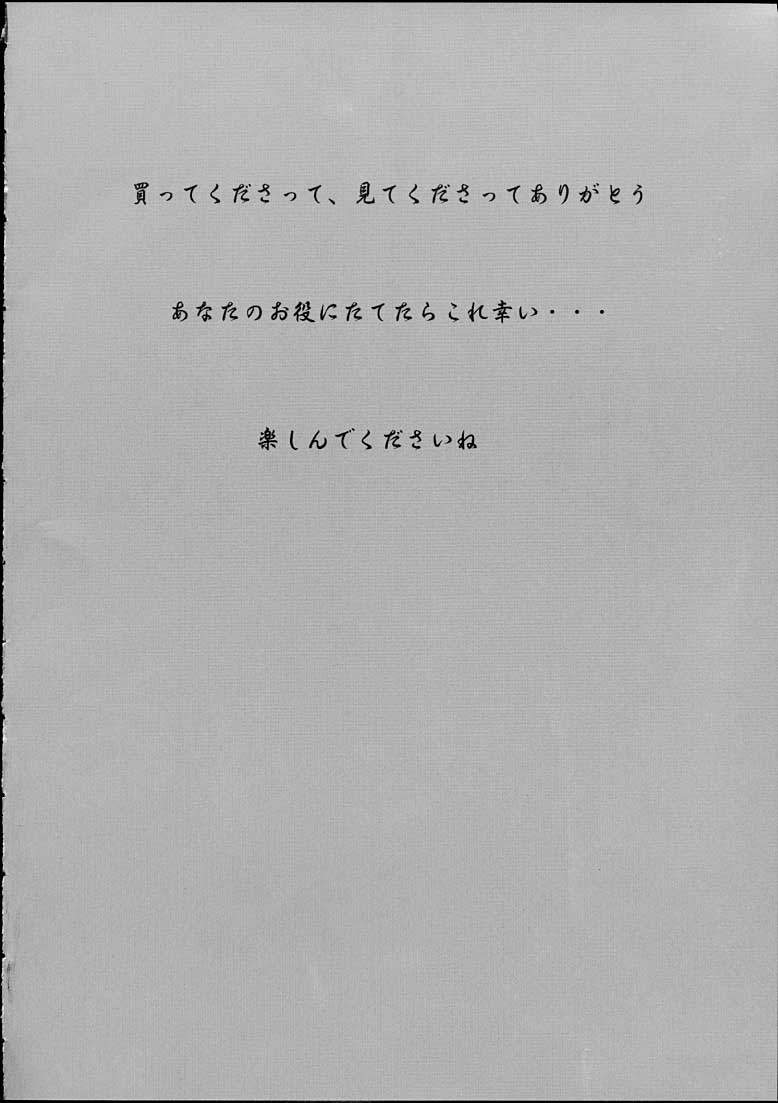 買ってくださって、見てくださってありがとう
あなたのお役にたてたらこれ幸い・・・
楽しんでくださいね